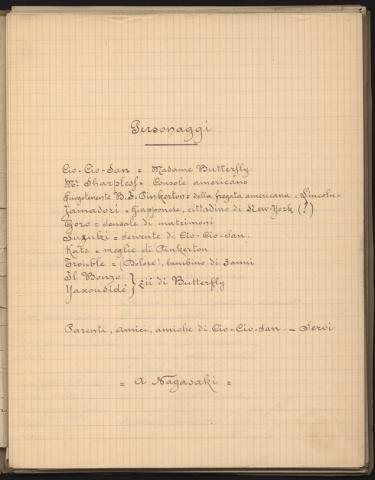 Personaggi
Cio-Cio-San = Madame Butterfly
Mr Sharpless = Console americano
Luogotenente B. F. Pinkerton = della fregata americana "Lincoln"
Yamadori = Giapponese, cittadino di New-York (?)
Goro = sensale di matrimoni
Suzuki = servente di Cio-Cio-San.
Kate = moglie di Pinkerton
Trouble = (Dolore), bambino di 3 anni
Il Bonzo
Yaxouside } zii di Butterfly
Parenti, amici, amiche di Cio-Cio-San — Servi
= A Nagasaki =